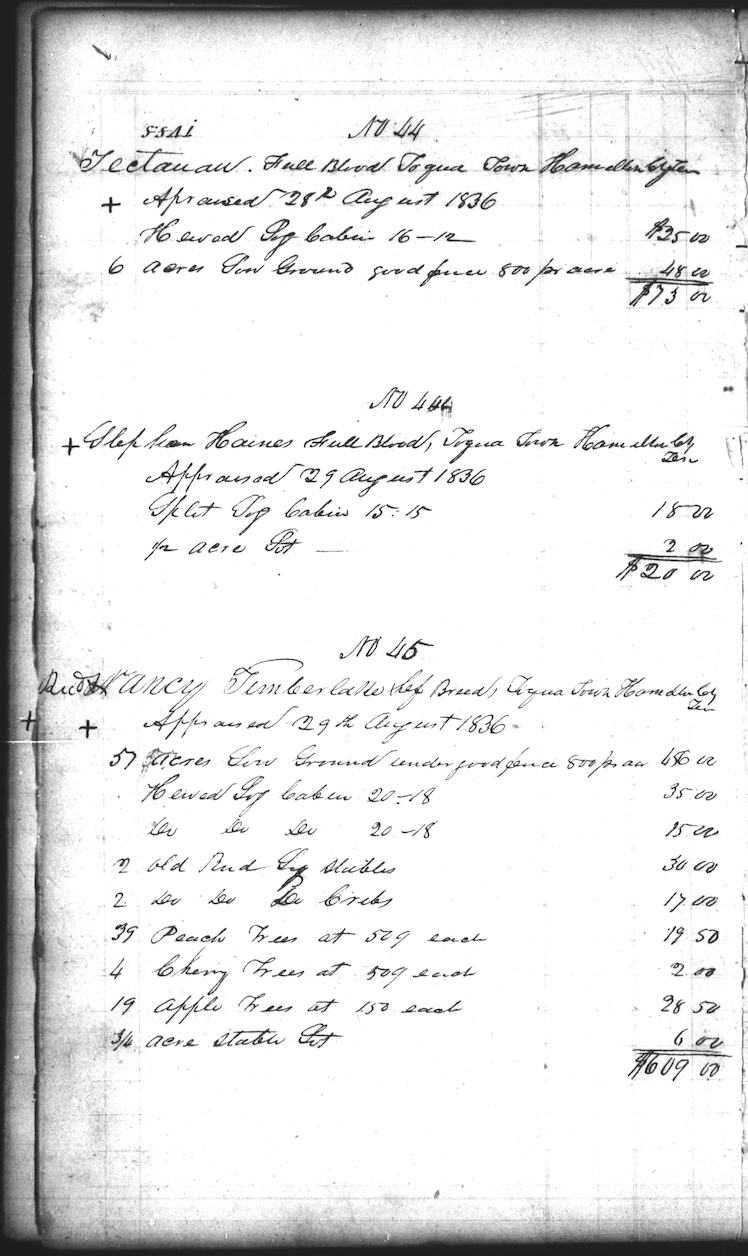 No 44
Tectanau. Full Blood Toqua Town Hamelton Cty Ten
+ Apraised 28th August 1836
Hewed Log Cabin 16-12 $25 00
6 acres Low Ground good fence 800 pr acre 48 00
$73 00
No 44
+ Stephen Haines Full Blood, Toqua Town Hamelton Cty
Ten
Appraised 29 August 1836
Split Log Cabin 15-15 18 00
1/2 acre Lot 2 00
$20 00
No 45
Nancy Timberlake Half Breed, Toqua Town Hamelton Cty
Ten
+ + Appraised 29th August 1836
57 acres Low Ground under good fence 800 pr acr 456 00
Hewed Log Cabin 20-18 35 00
Do Do Do 20-18 15 00
2 old Rud Log Stables 30 00
2 Do Do Do Cribs 17 00
39 Peach Trees at 50¢ each 19 50
4 Cherry Trees at 50¢ each 2 00
19 Apple Trees at 150 each 28 50
3/4 acre Stable Lot 6 00
$609 00